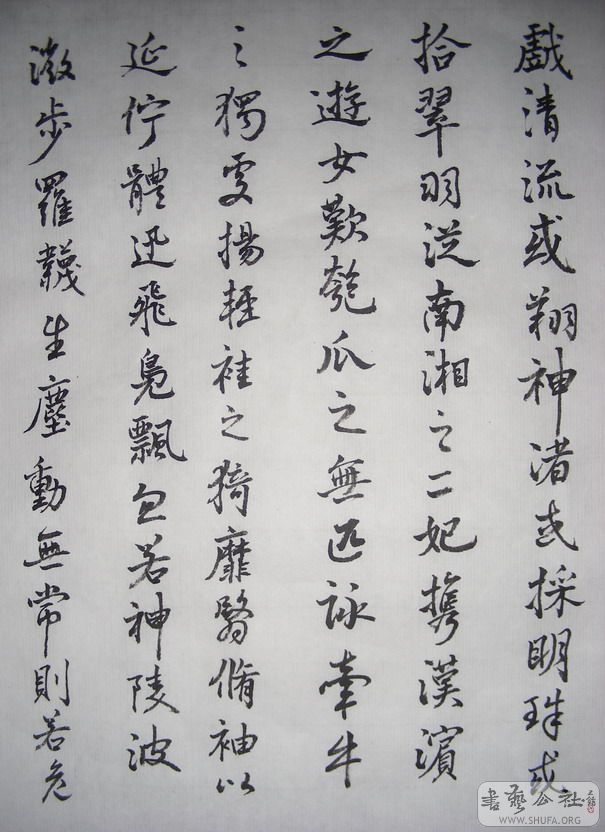 戲清流或翔神渚或採明珠或
拾翠羽從南湘之二妃攜漢濱
之遊女歎匏瓜之無匹詠牽牛
之獨處揚輕袿之猗靡翳脩袖以
延佇體迅飛鳧飄忽若神陵波
微步羅韈生塵動無常則若危
書藝公社
WWW.SHUFA.ORG